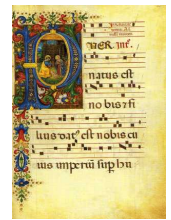 PUER
natus est
no bis & fi
lius dat' est nobis cu
ius imperiū sup hu